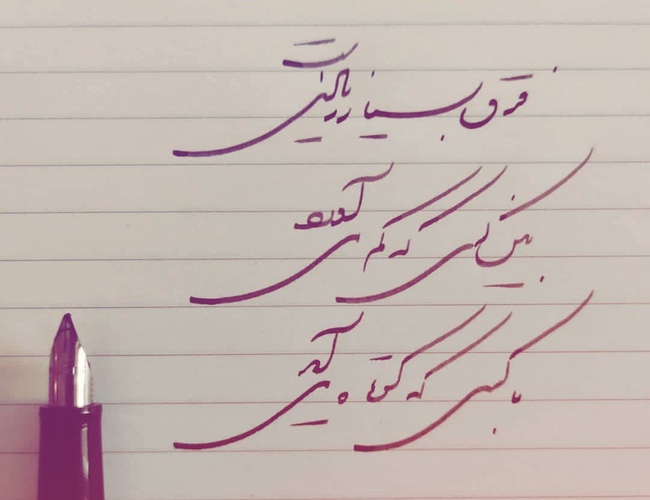 فرق بسیار زیادیست
بین کسی که کم می آورد
با کسی که کوتاه می آید